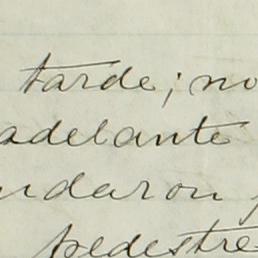 tarde; no
adelante
ndaron
pedestre